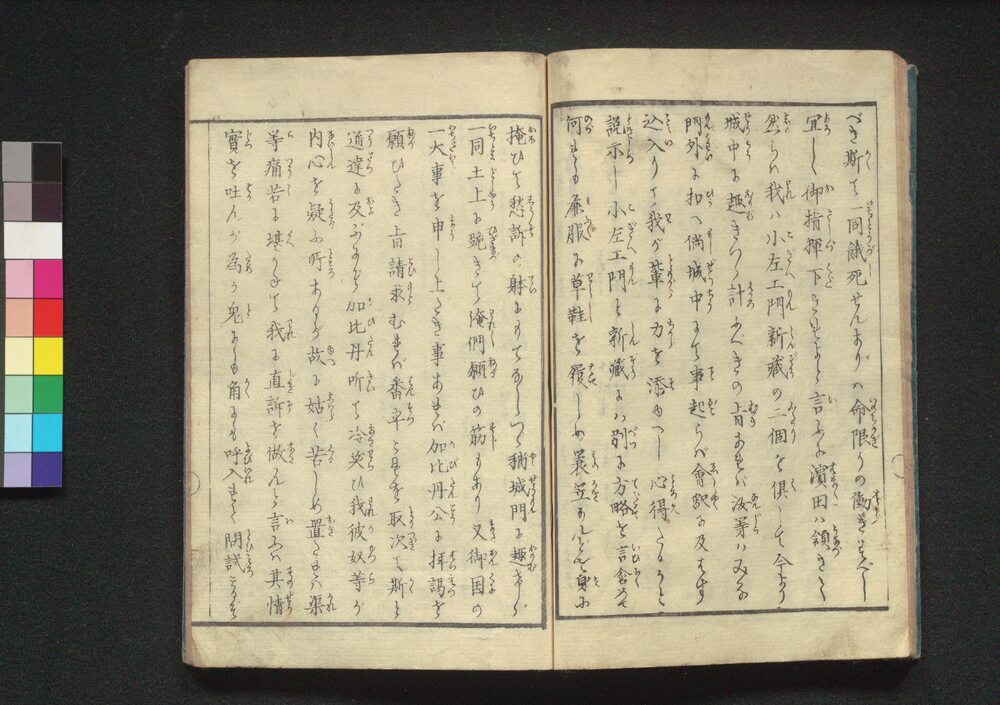 べき斯て一同餓死せんよりハ命限りの働きすべし
宜しく御指揮下さるべしと言にぞ濱田ハ領きて
然らバ我ハ小左エ門新藏の二個を倶して今より
城中に趣きつゝ計ふべきの旨あれバ汝等ハみな
門外に扣へ倘城中にて事起らバ會釈に及ばず
込入りて我が輩に力を添ゆべし心得たるかと
説示し小左エ門と新藏にハ別に方略を言含めて
何れも麁服に草鞋を履しめ蓑笠なんど身に
掩ひて愁訴の躰にもてなしつゝ稍城門に趣きが
一同土上に跪きて俺們願ひの筋もあり又御国の
一大事を申し上たき事あれバ加比丹公に拝謁を
願ひたき旨請求むれバ番卒これを取次て斯と
道達に及ぶにぞ加比丹听て冷笑ひ我彼奴等が
内心を疑ふ所あるが故に姑く苦しめ置たるに渠
等痛苦に堪かねて我に直訴を做んと言ふハ其情
實を吐んが為か兎にも角にも呼入れて問試こそ